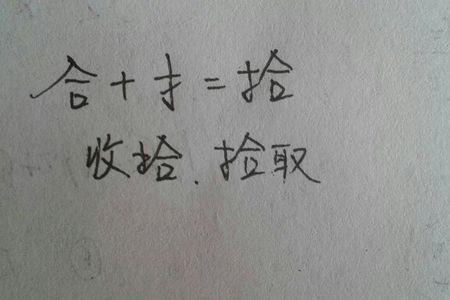 合+扌=拾
收拾、拾取